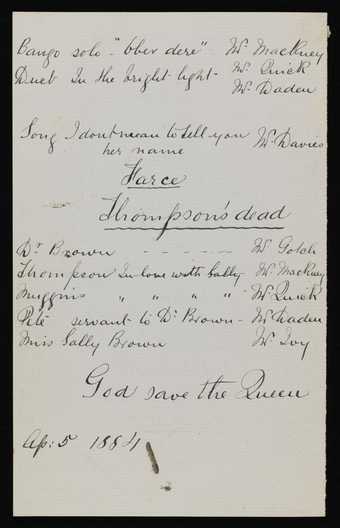 Bango solo - "Ober dere" - Mr. Mackney
Duet In the bright light - Mr. Quick
Mr. Daden
Song I dont mean to tell you Mr. Davies
her name
Farce
Thompson's dead
Dr. Brown - - - - - Mr. Gotch
Thompson In love with Sally Mr. Mackney
Muggins " " " " Mr. Quick
Pete servant to Dr. Brown - Mr. Daden
Miss Sally Brown Mr. Ivy
God save the Queen
Ap: 5 1884